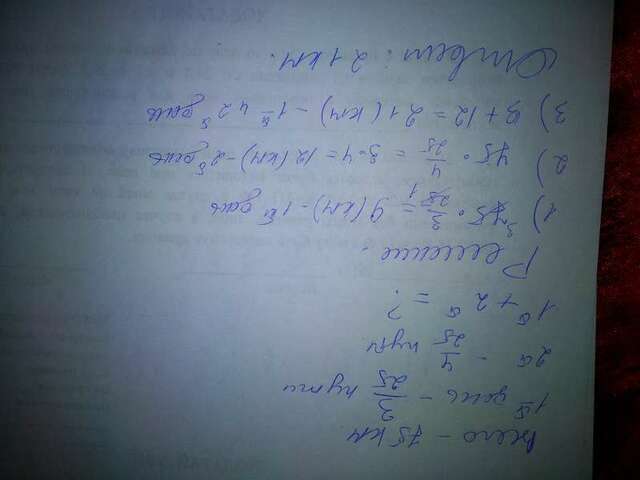 Всего - 75 км
1й день - 3/25 пути
2й - 4/25 пути
1й + 2й = ?
Решение.
1) 75 · 3/25 = 9 (км) - 1й день
2) 75 · 4/25 = 3·4 = 12 (км) - 2й день
3) 9 + 12 = 21 (км) - 1й и 2й день
Ответ: 21 км.